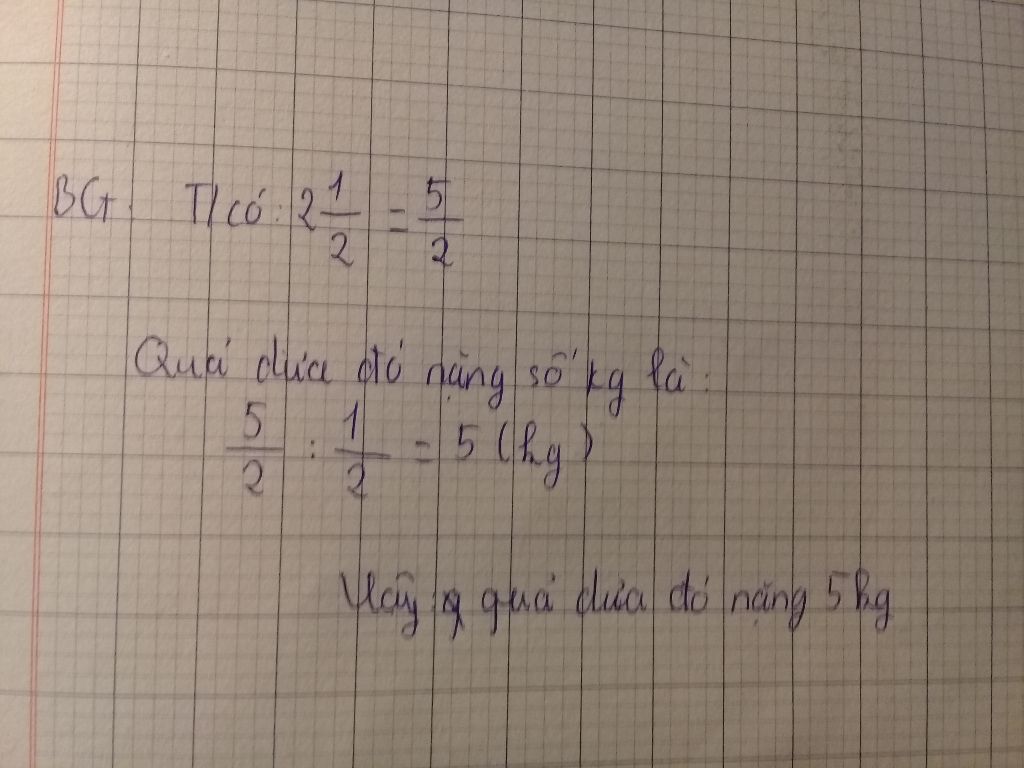 BG. T/có: 2 1/2 = 5/2
Quả dưa đó nặng số kg là:
5/2 : 1/2 = 5 (kg)
Vậy quả dưa đó nặng 5kg